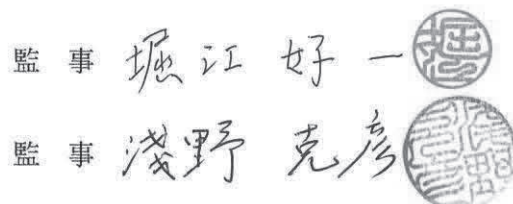 監事 堀江 好一
監事 淺野 克彦